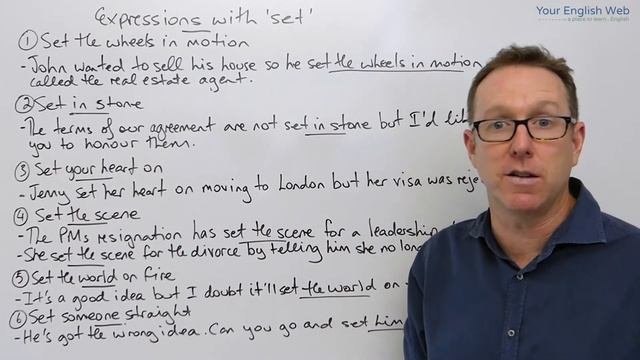 Your English Web
a place to learn.. English
Expressions with 'set'
① Set the wheels in motion
- John wanted to sell his house so he set the wheels in motion
called the real estate agent.
② Set in stone
- The terms of our agreement are not set in stone but I'd
you to honour them.
③ Set your heart on
- Jenny set her heart on moving to London but her visa was
④ Set the scene
- The PMs resignation has set the scene for a leadership
- She set the scene for the divorce by telling him she no
⑤ Set the world on fire
- It's a good idea but I doubt it'll set the world on
⑥ Set someone straight
- He's got the wrong idea. Can you go and set him